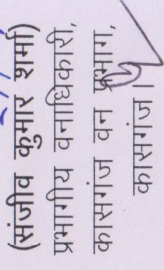 (संजीव कुमार शर्मा)
प्रभागीय वनाधिकारी,
कासगंज वन प्रभाग,
कासगंज।